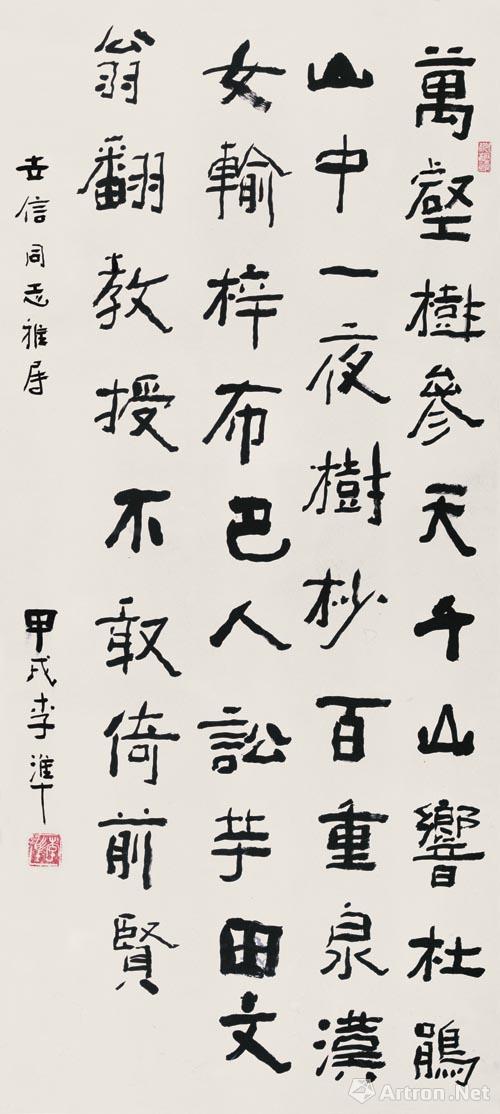 萬壑樹參天千山響杜鵑
山中一夜樹杪百重泉漢
女輸梓布巴人訟芋田文
翁翻教授不敢倚前賢
世信同志雅属
甲戌李準
Artron.Net